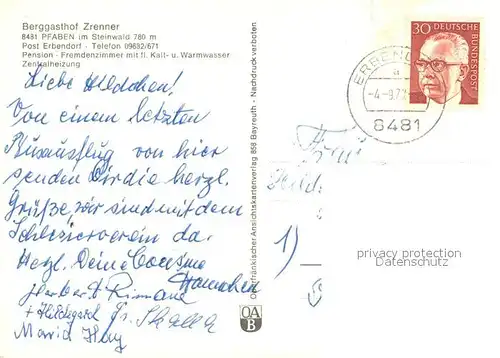 Berggasthof Zrenner
8481 PFABEN im Steinwald 780 m
Post Erbendorf - Telefon 09682/671
Pension - Fremdenzimmer mit fl. Kalt- u. Warmwasser
Zentralheizung
Liebe Hildchen!
Von einem letzten
Busausflug von hier
senden wir die herzl.
Grüße, wir sind mit dem
Schlesierverein da.
Herzl. Deine Cousine
Hannchen
Herbert
+ Hildegard Fr. Skalla
Oberfränkischer Ansichtskartenverlag 858 Bayreuth - Nachdruck verboten
OA
B
30 DEUTSCHE
BUNDESPOST
ERBEND
a
-4.-9.7
8481
Frau
Hild
1)
privacy protection
Datenschutz